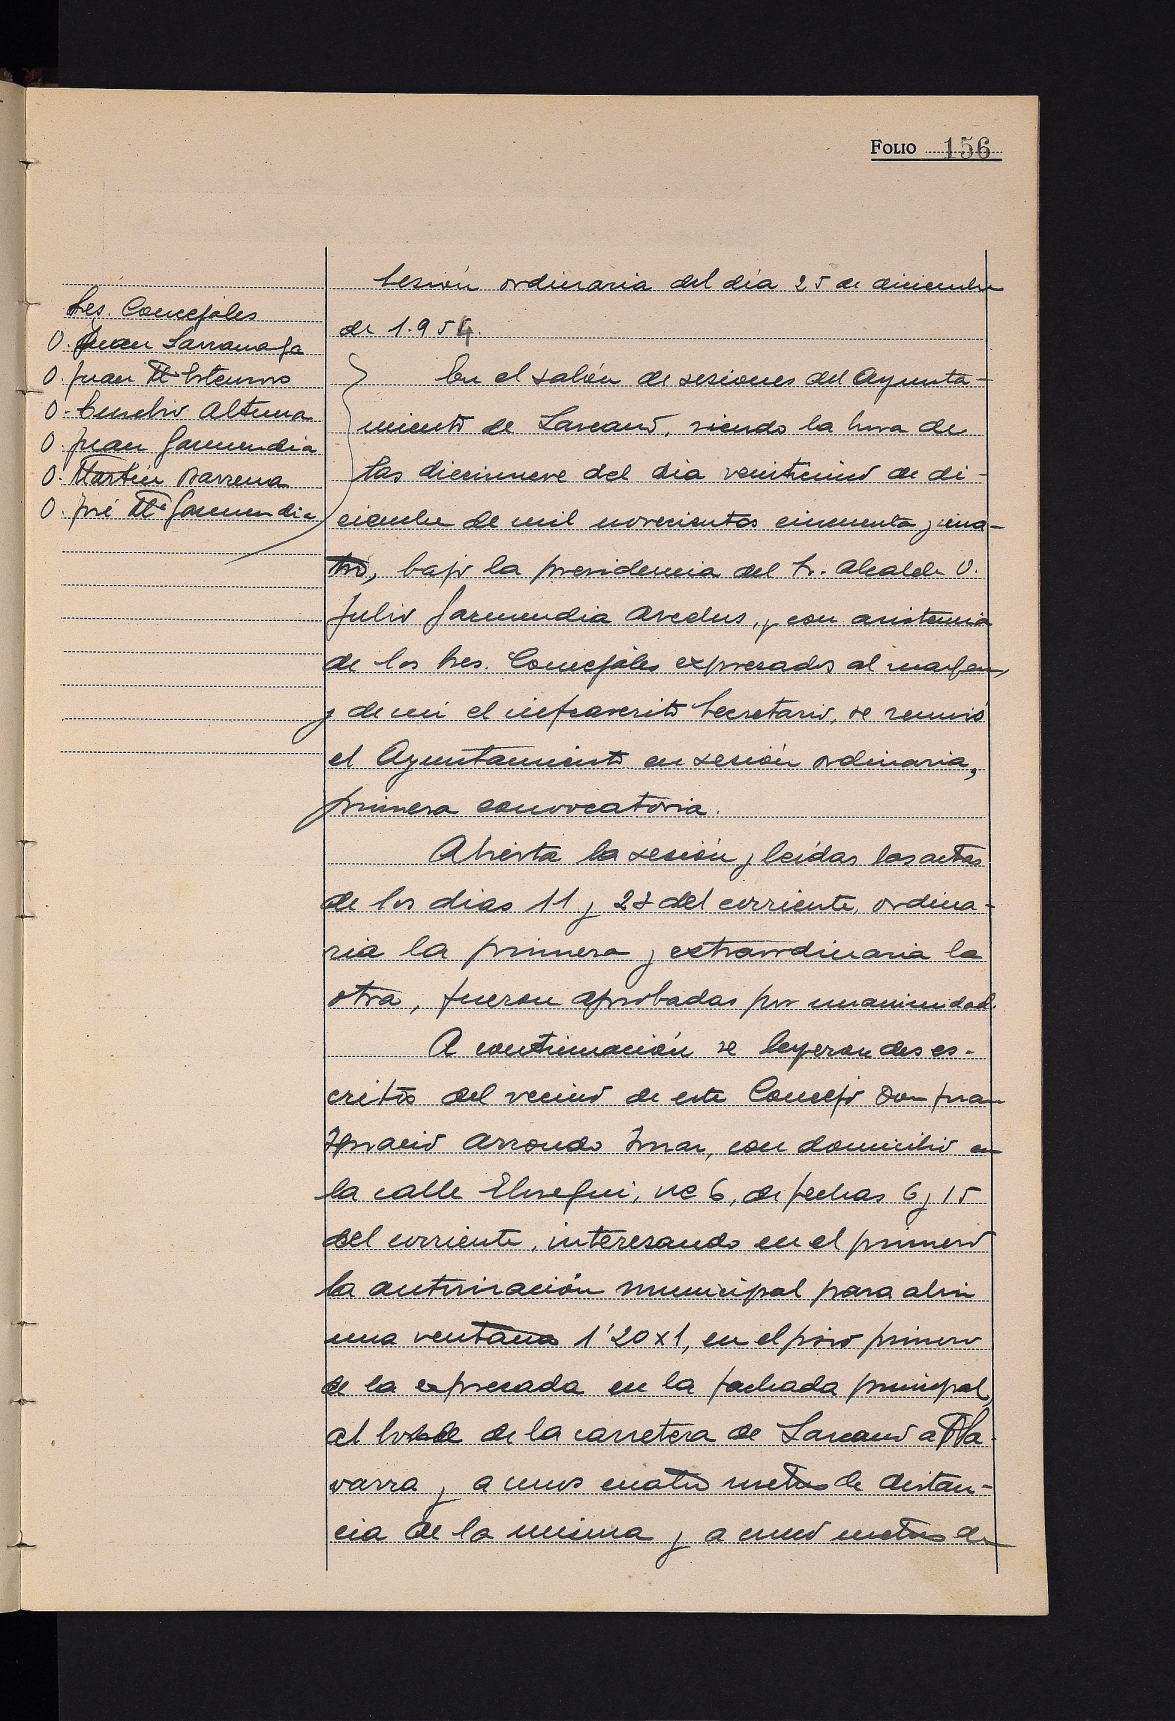 FOLIO 156
Sres. Concejales
D. Juan Larrañaga
D. Juan Mª
D. Eusebio Altuna
D. Juan Garmendia
D. Martín Barrena
D. José Mª Garmendia
Sesión ordinaria del día 25 de diciembre
de 1.954.
En el salón de sesiones del Ayunta-
miento de Lazcano, siendo la hora de
las diecinueve del día veinticinco de di-
ciembre de mil novecientos cincuenta y cua-
tro, bajo la presidencia del Sr. Alcalde D.
Julio Garmendia Arcelus, y con asistencia
de los Sres. Concejales expresados al margen,
y de mi el infrascrito Secretario, se reunió
el Ayuntamiento en sesión ordinaria,
primera convocatoria.
Abierta la sesión y leídas las actas
de los días 11 y 23 del corriente, ordina-
ria la primera y extraordinaria la
otra, fueron aprobadas por unanimidad.
A continuación se leyeron dos es-
critos del vecino de este Concejo Don Juan
Ignacio Arrondo Imaz, con domicilio en
la calle Elosegui, nº 6, de fechas 6 y 15
del corriente, interesando en el primero
la autorización municipal para abrir
una ventana 1'20x1, en el piso primero
de la expresada en la fachada principal,
al borde de la carretera de Lazcano a Na-
varra y a unos cuatro metros de distan-
cia de la misma y a cinco metros de